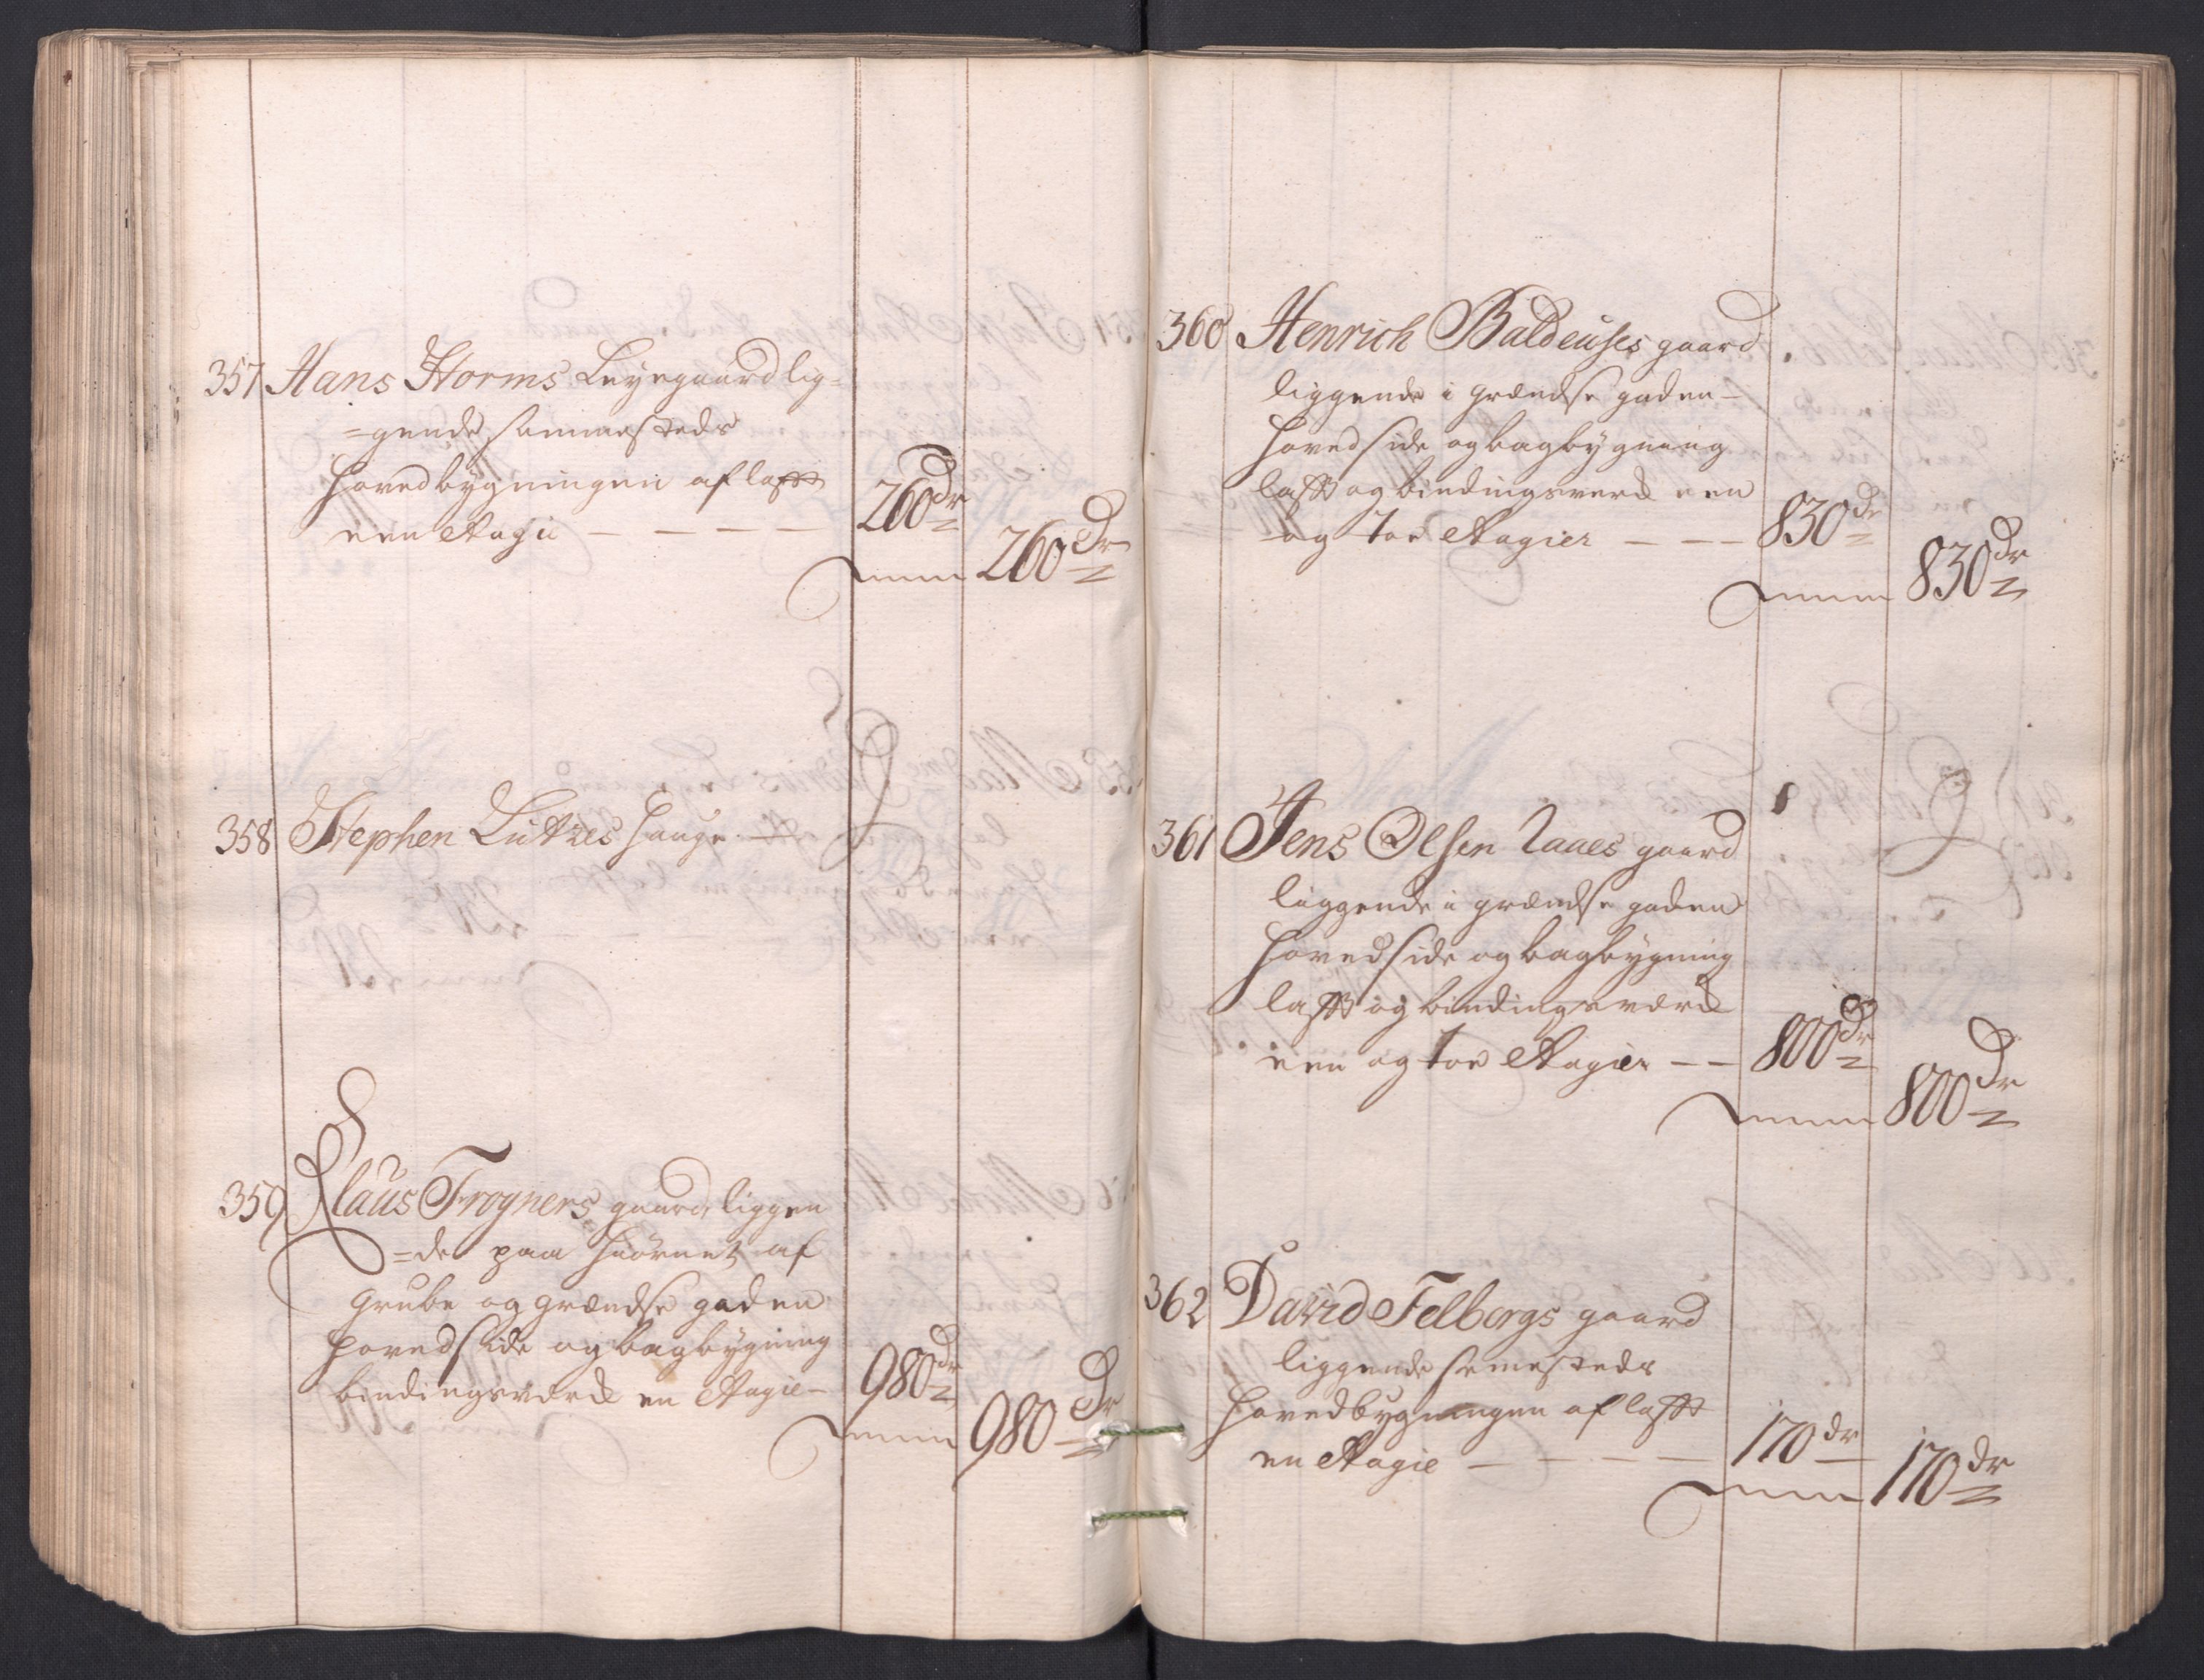 357 Hans Storms Leyegaard lig=
=gende sammesteds
Hovedbygningen af lafft
een Etagie — — — — 260 Dr
Summa 260 Dr
358 Stephen Lutzes Hauge
359 Klaus Frogners gaard, liggen
=de paa Hiørnet af
Grube og grændse gaden
Hoved side og bagbygning
bindingsværck en Etagie — 980 Dr
Summa 980 Dr
360 Henrich Baldeuses gaard
liggende i grændse gaden —
Hoved side og bagbygning
lafft og bindingsverck een
og toe Etagier — — — 830 Dr
Summa 830 Dr
361 Jens Olsen Laaes gaard
liggende i grændse gaden
Hoved side og bagbygning
lafft og bindingsværck
een og toe Etagier — — 800 Dr
Summa 800 Dr
362 David Felborgs gaard
liggende semesteds
Hovedbygningen af lafft
en Etagie — — — — 170 Dr
Summa 170 Dr